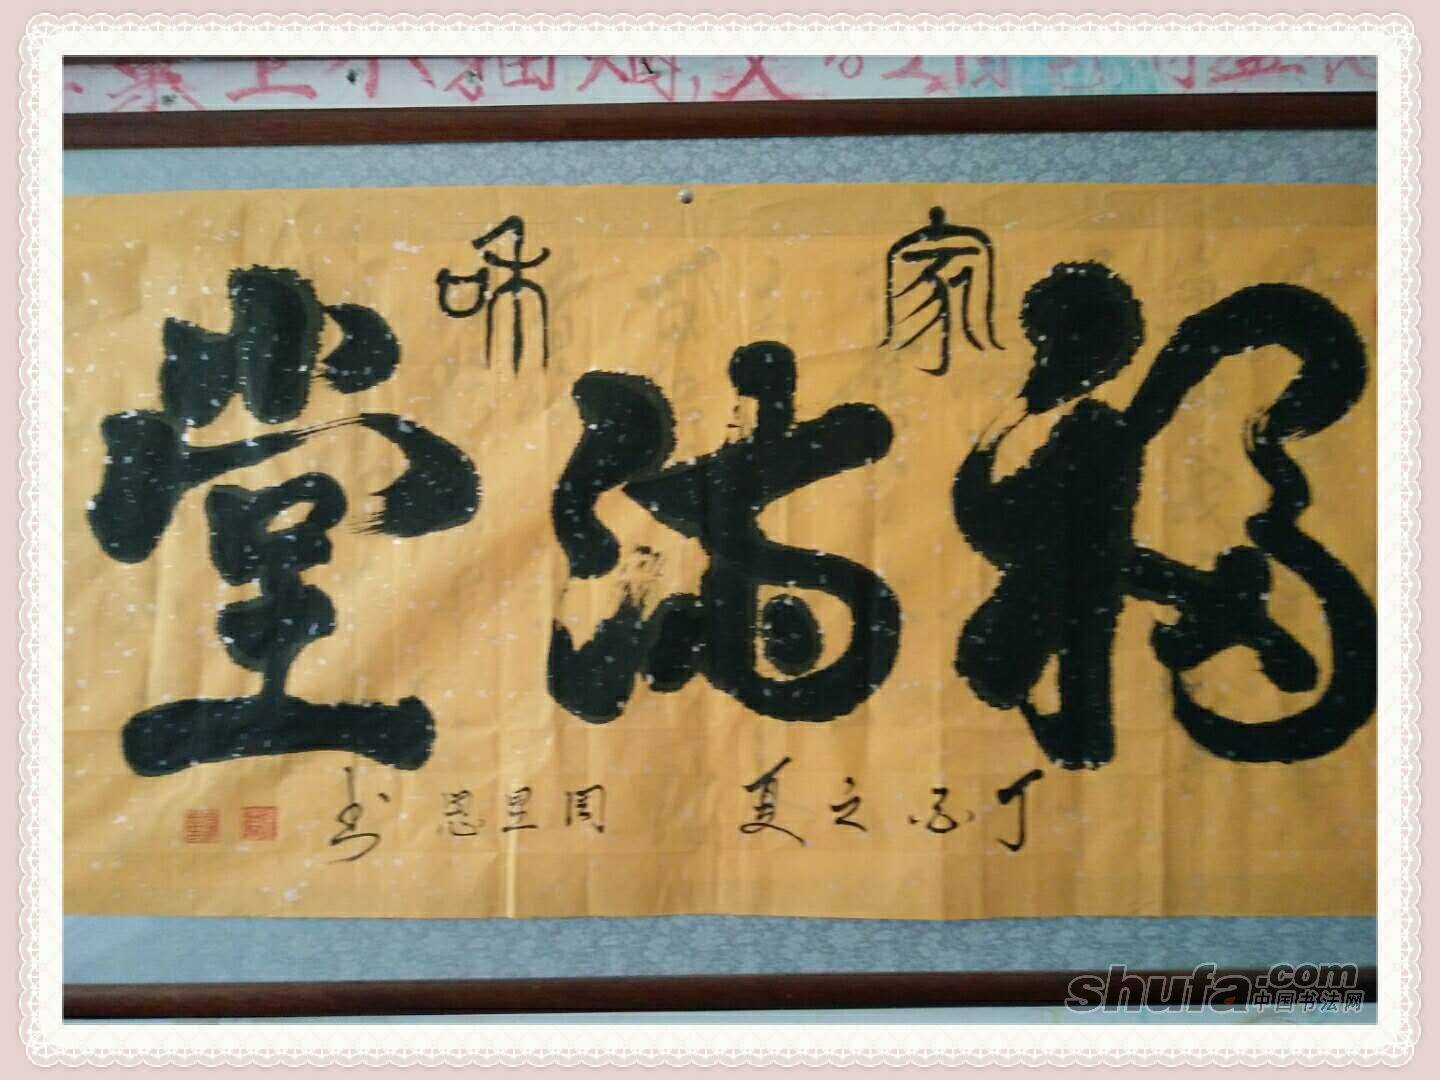 家和
福满堂
丁酉之夏 周里恩 书
shufa.com
中国书法网